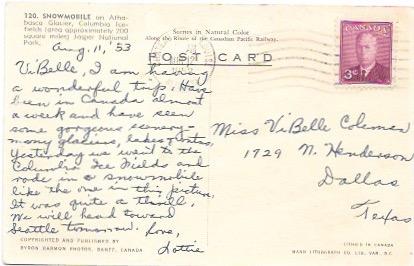 120. SNOWMOBILE on Atha-
basca Glacier, Columbia Ice-
fields (area approximately 200
square miles) Jasper National
Park.
Aug. 11, '53
Scenes in Natural Color
Along the Route of the Canadian Pacific Railway.
POST CARD
CANADA
3¢
Vi Belle, I am having
a wonderful trip. Have
been in Canada almost
a week and have seen
some gorgeous scenery -
many glaciers, lakes & mtns.
Yesterday we went to the
Columbia Ice Fields and
rode in a snowmobile
like the one in this picture.
It was quite a thrill.
We will head toward
Seattle tomorrow. Love,
Lottie
Miss Vi Belle Coleman
1729 N. Henderson
Dallas
Texas
COPYRIGHTED AND PUBLISHED BY
BYRON HARMON PHOTOS. BANFF, CANADA
LITHO'D IN CANADA
MAHN LITHOGRAPH CO. LTD. VAN., B.C.